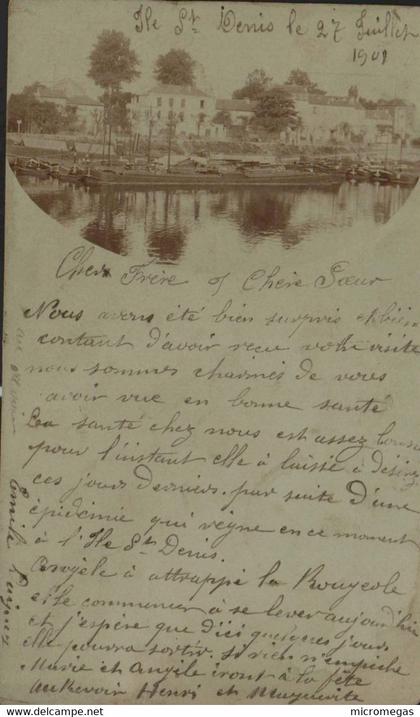 Ile St. Denis le 27 Juillet
1901
Cher Frère et Chère Sœur
Nous avons été bien surpris et bien
contant d'avoir recu votre visite
nous sommes charmés de vous
avoir vue en bonne santé
La santé chez nous est assez bonne
pour l'instant elle à laissé à désirer
ces jours derniers. par suite d'une
épidémie qui règne en ce moment
à l'Ile St. Denis.
Angèle à attrappé la Rougeole
elle commence à se lever aujourd'hui
et j'espère que d'ici quelques jours
elle pourra sortir. si rien n'empêche
Marie et Angèle iront à la fête
Aurevoir Henri et Marguerite
Emile
micromegas